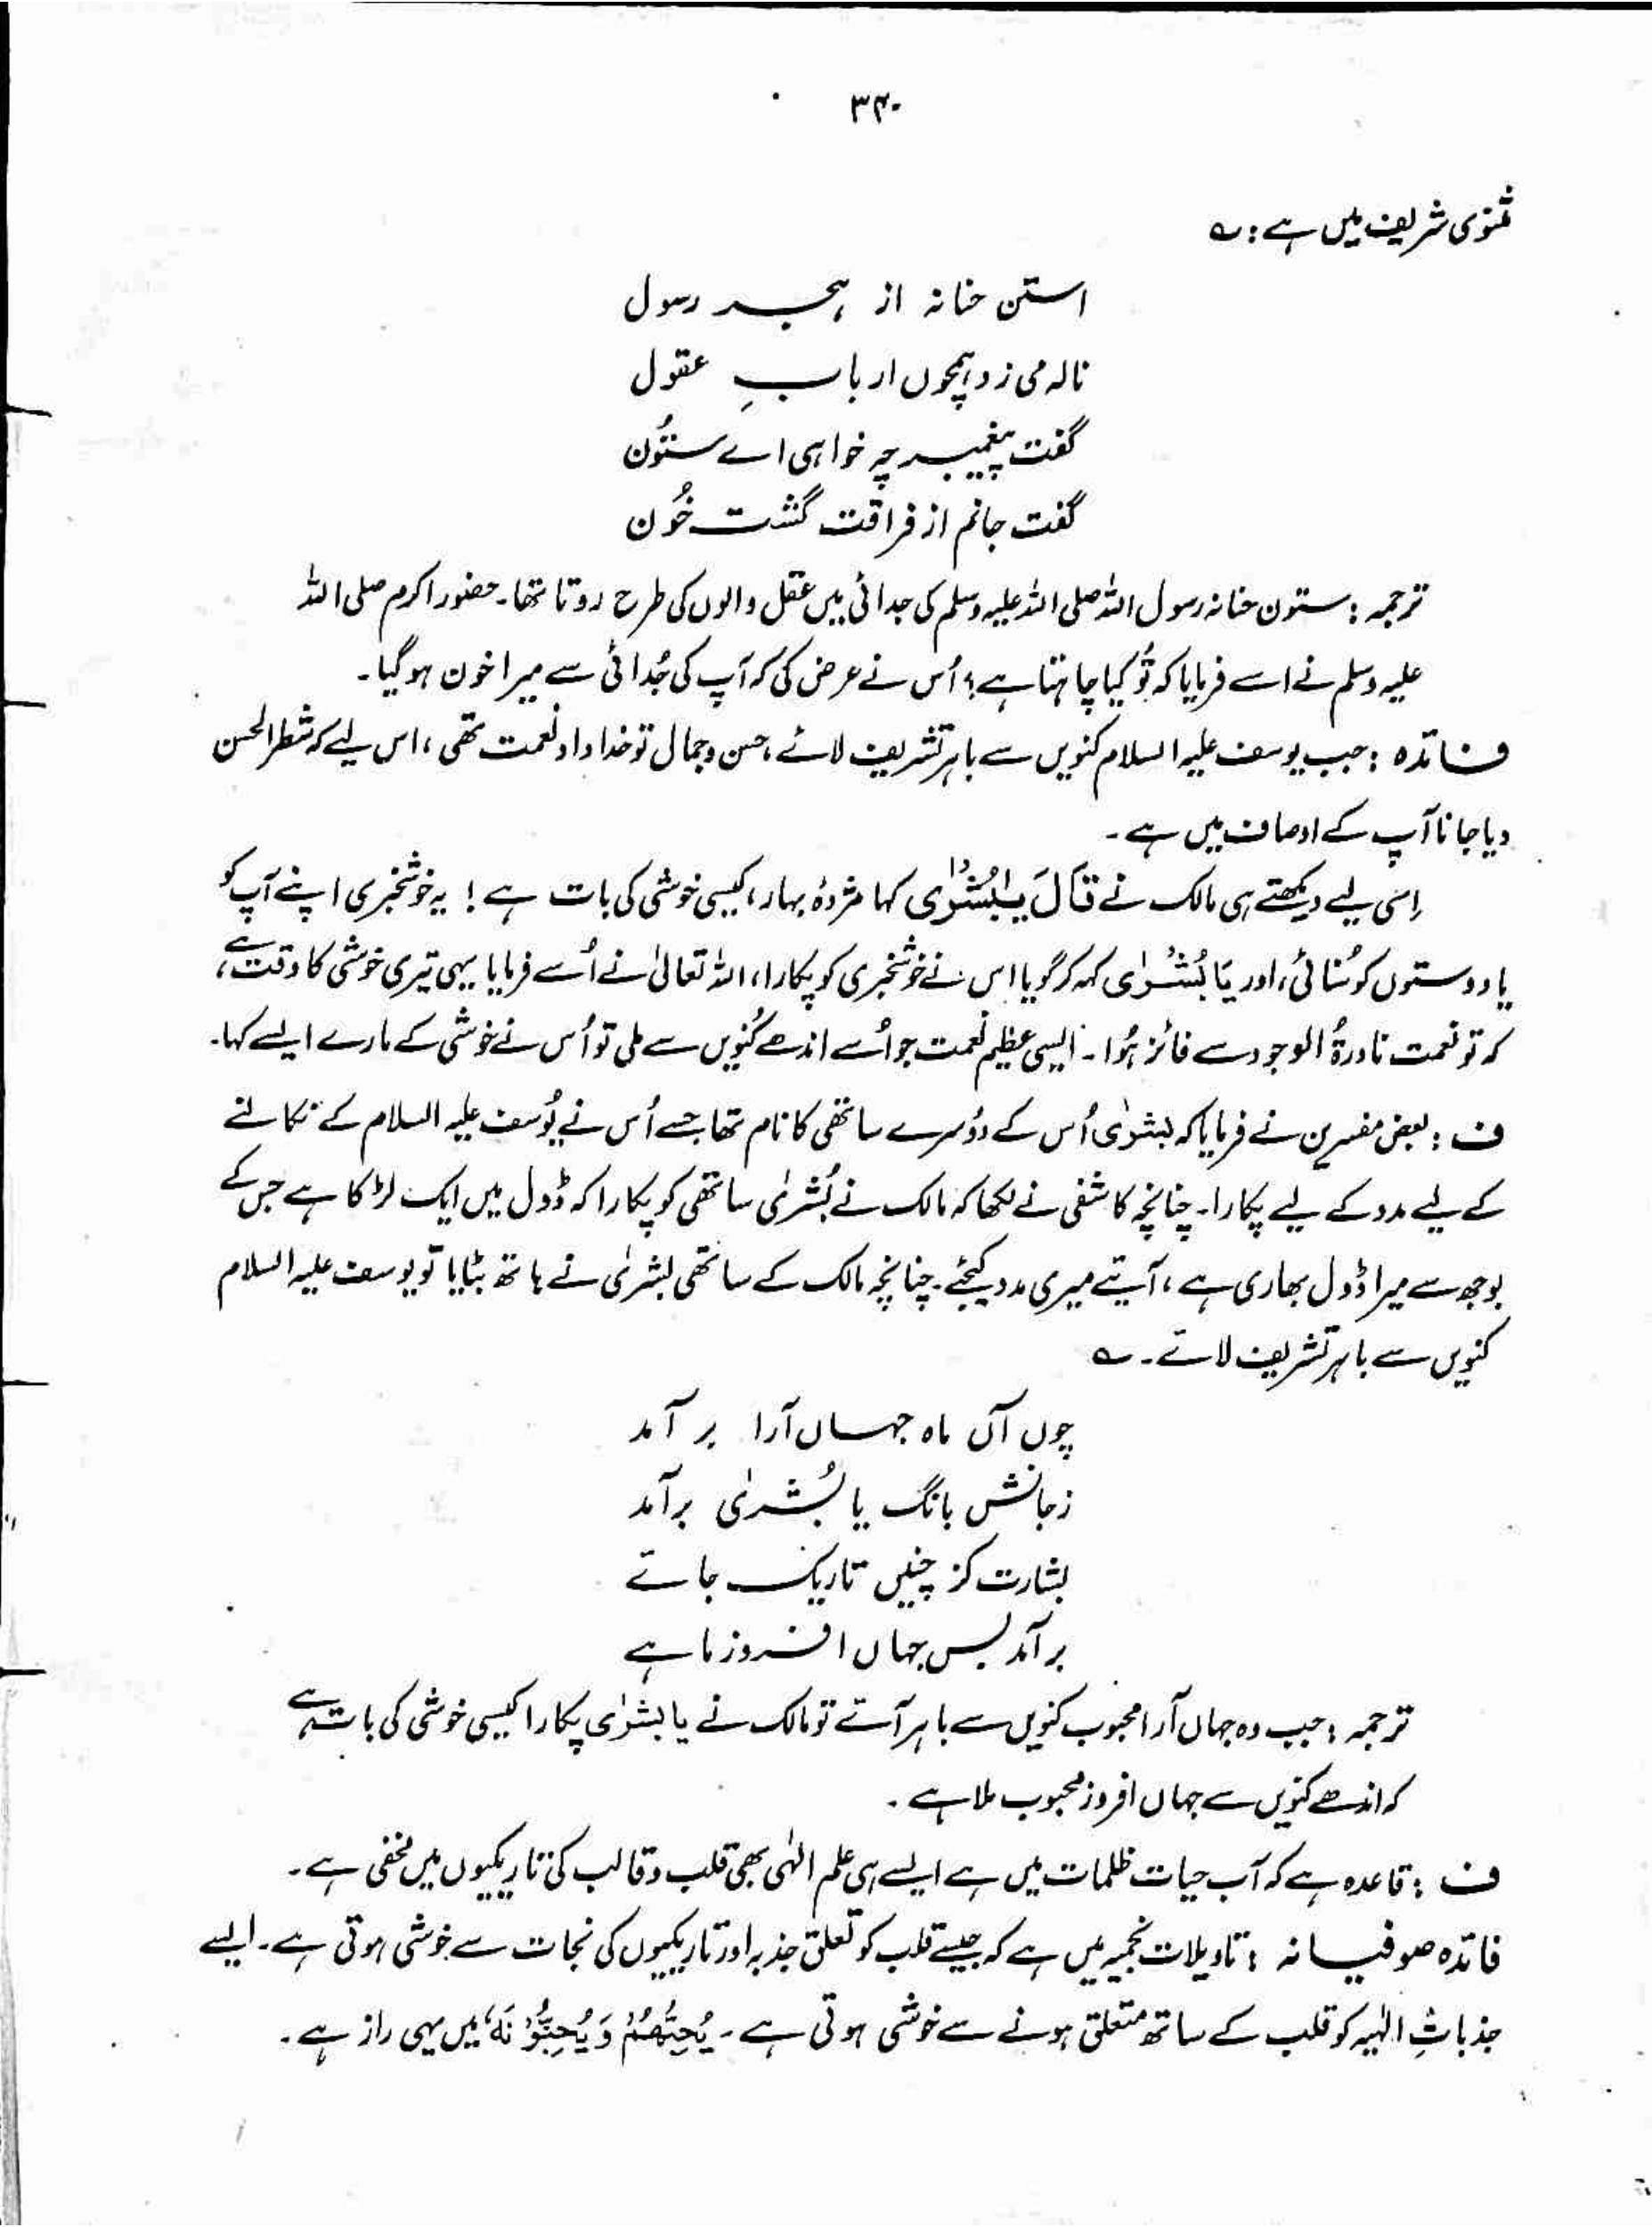 ۳۴۰
مثنوی شریف میں ہے : ؎
استن حنانہ از ہجر رسول
نالہ می زد ہمچوں اربابِ عقول
گفت پیغمبر چہ خواہی اے ستُون
گفت جانم از فراقت گشت خُون
ترجمہ : ستون حنانہ رسول اللہ صلی اللہ علیہ وسلم کی جدائی میں عقل والوں کی طرح روتا تھا۔ حضور اکرم صلی اللہ
علیہ وسلم نے اسے فرمایا کہ تُو کیا چاہتا ہے؟ اُس نے عرض کی کہ آپ کی جُدائی سے میرا خون ہو گیا۔
فائدہ : جب یوسف علیہ السلام کنویں سے باہر تشریف لائے، حسن و جمال تو خداداد نعمت تھی، اس لیے کہ شطر الحسن
دیا جانا آپ کے اوصاف میں ہے۔
اِسی لیے دیکھتے ہی مالک نے قَالَ یٰبُشْرٰی کہا مژدۂ بہار، کیسی خوشی کی بات ہے! یہ خوشخبری اپنے آپ کو
یا دوستوں کو سُنائی، اور یَا بُشْرٰی کہہ کر گویا اس نے خوشخبری کو پکارا، اللہ تعالیٰ نے اُسے فرمایا یہی تیری خوشی کا وقت ہے،
کہ تو نعمت نادرۃُ الوجود سے فائز ہُوا۔ ایسی عظیم نعمت جو اُسے اندھے کُنویں سے ملی تو اُس نے خوشی کے مارے ایسے کہا۔
ف : بعض مفسرین نے فرمایا کہ بشرٰی اُس کے دُوسرے ساتھی کا نام تھا جسے اُس نے یُوسف علیہ السلام کے نکالنے
کے لیے مدد کے لیے پکارا۔ چنانچہ کاشفی نے لکھا کہ مالک نے بُشرٰی ساتھی کو پکارا کہ ڈول میں ایک لڑکا ہے جس کے
بوجھ سے میرا ڈول بھاری ہے، آیئے میری مدد کیجئے۔ چنانچہ مالک کے ساتھی بشرٰی نے ہاتھ بٹایا تو یوسف علیہ السلام
کنویں سے باہر تشریف لائے۔ ؎
چوں آں ماہ جہاں آرا بر آمد
زجانش بانگ یا بُشرٰی برآمد
بشارت کز چنیں تاریک جائے
برآمد بس جہاں افروز ماہے
ترجمہ : جب وہ جہاں آرا محبوب کنویں سے باہر آئے تو مالک نے یا بشرٰی پکارا کیسی خوشی کی بات ہے
کہ اندھے کنویں سے جہاں افروز محبوب ملا ہے۔
ف : قاعدہ ہے کہ آب حیات ظلمات میں ہے ایسے ہی علم الٰہی بھی قلب و قالب کی تاریکیوں میں مخفی ہے۔
فائدہ صوفیانہ : تاویلات نجمیہ میں ہے کہ جیسے قلب کو تعلق جذبہ اور تاریکیوں کی نجات سے خوشی ہوتی ہے۔ ایسے
جذباتِ الٰہیہ کو قلب کے ساتھ متعلق ہونے سے خوشی ہوتی ہے۔ یُحِبُّھُمْ وَ یُحِبُّوْنَہٗ میں یہی راز ہے۔